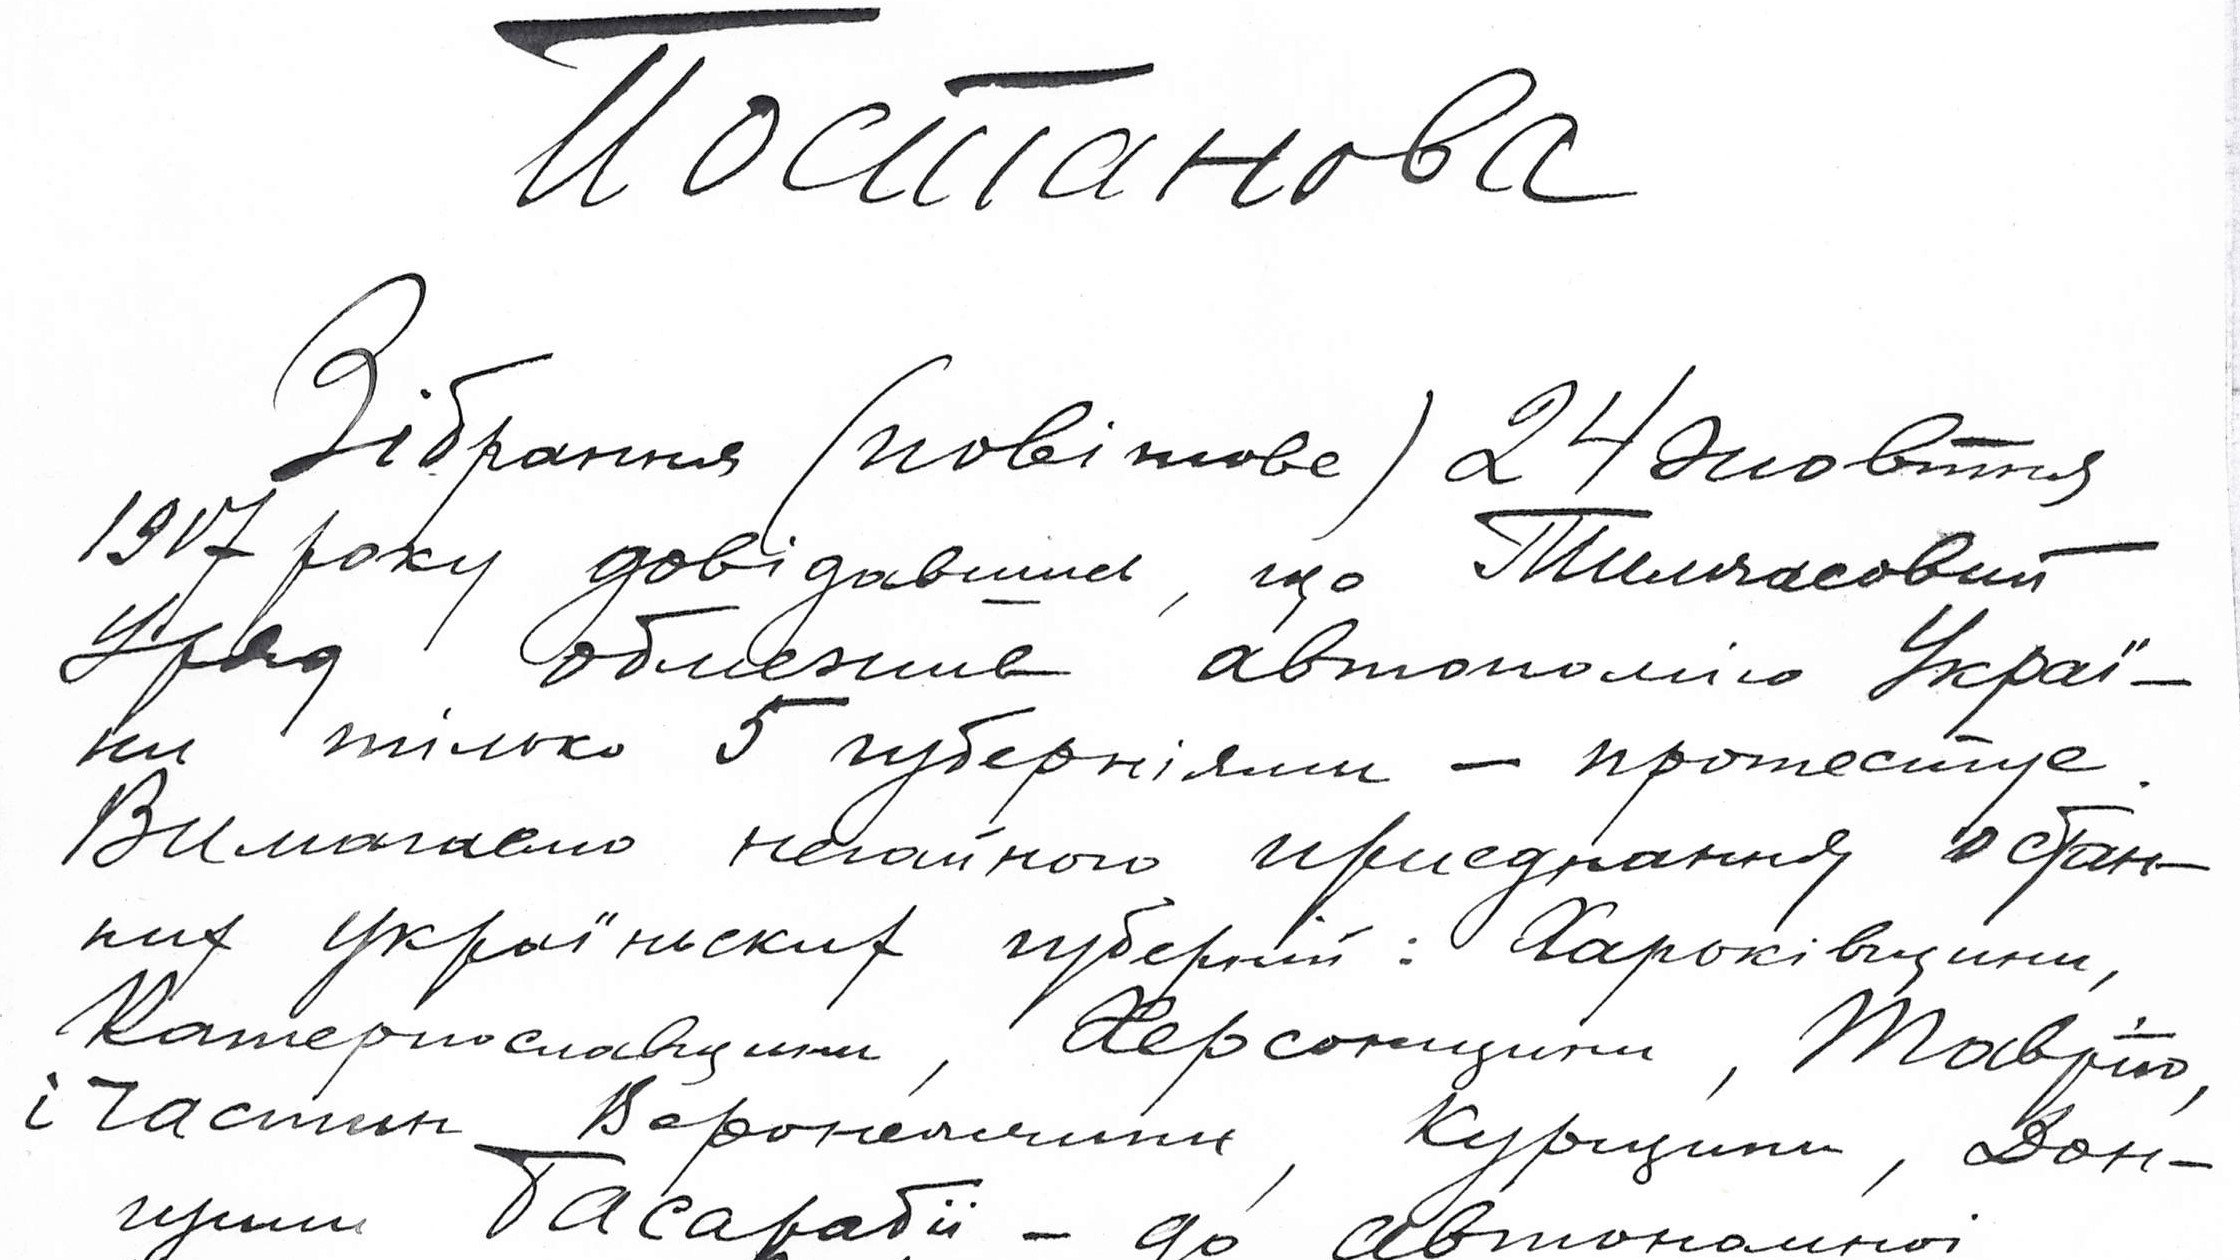 Постанова
Зібрання (повітове) 24 жовтня
1917 року довідавшись, що Тимчасовий
Уряд обмежив автономію Украї-
ни тілько 5 губерніями – протестує.
Вимагаємо негайного приєднання остан-
них Украї́ньских губерній: Харьківщини,
Катеринославщини, Херсонщини, Таврію,
і частин Вороніжчини, Курщини, Дон-
щини Басарабії – до автономної